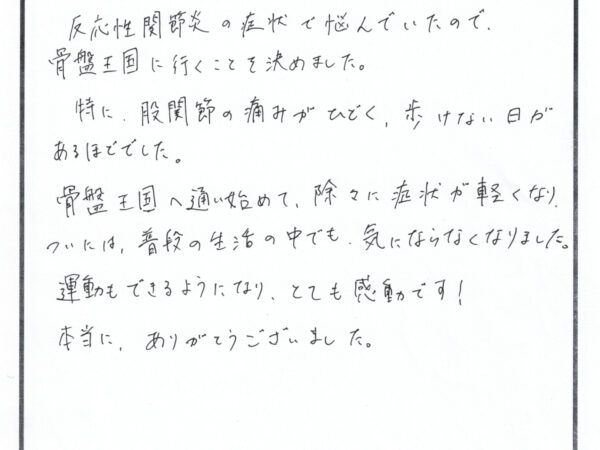 反応性関節炎の症状で悩んでいたので、
骨盤王国に行くことを決めました。
特に、股関節の痛みがひどく、歩けない日が
あるほどでした。
骨盤王国へ通い始めて、除々に症状が軽くなり、
ついには、普段の生活の中でも、気にならなくなりました。
運動もできるようになり、とても感動です!
本当に、ありがとうございました。